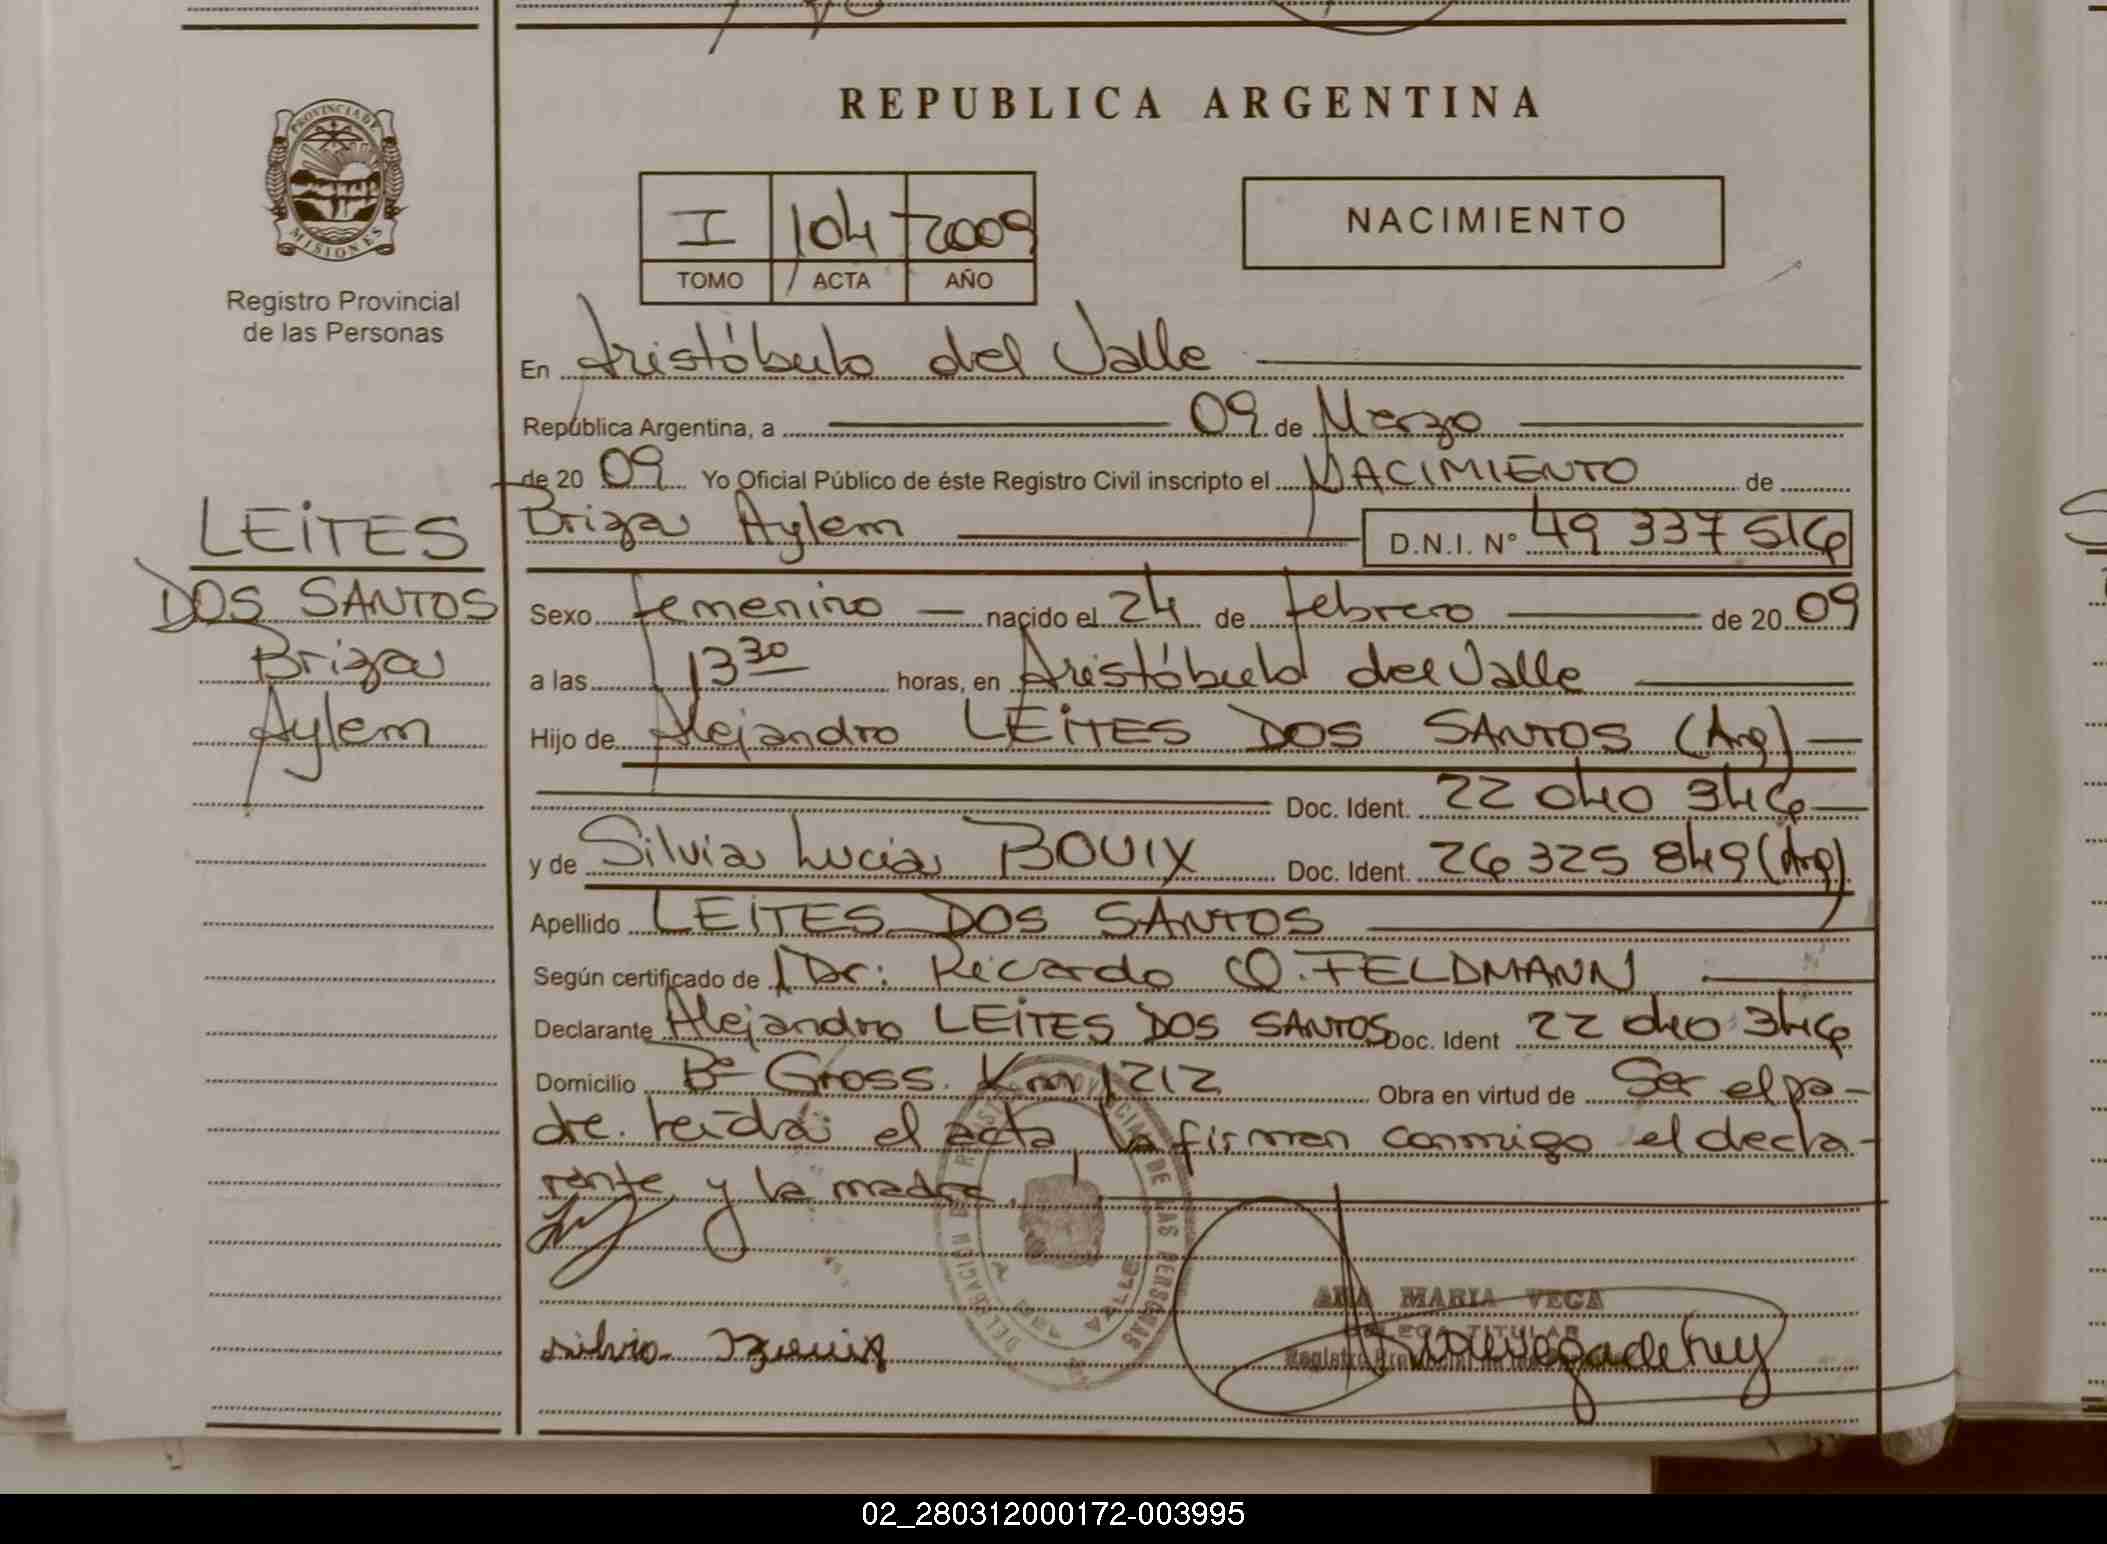 REPUBLICA ARGENTINA
PROVINCIA DE
MISIONES
Registro Provincial
de las Personas
I 104 2009
TOMO ACTA AÑO
NACIMIENTO
En Aristóbulo del Valle
República Argentina, a 09 de Marzo
de 20 09 Yo Oficial Público de éste Registro Civil inscripto el NACIMIENTO de
Briza Aylem D.N.I. N° 49 337 516
LEITES
DOS SANTOS
Briza
Aylem
Sexo femenino nacido el 24 de febrero de 20 09
a las 13 30 horas, en Aristóbulo del Valle
Hijo de Alejandro LEITES DOS SANTOS (Arg)
Doc. Ident. 22 040 346
y de Silvia Lucia BOUIX Doc. Ident. 26 325 849 (Arg)
Apellido LEITES DOS SANTOS
Según certificado de Dr: Ricardo O. FELDMANN
Declarante Alejandro LEITES DOS SANTOS Doc. Ident 22 040 346
Domicilio Bº Gross. Km 1212 Obra en virtud de Ser el pa-
dre. Leída el acta la firman conmigo el decla-
rante y la madre.
DELEGACION REGISTRO PROVINCIAL DE LAS PERSONAS
ANA MARIA VEGA
TITULAR
Registro Provincial
silvia Bouix
02_280312000172-003995